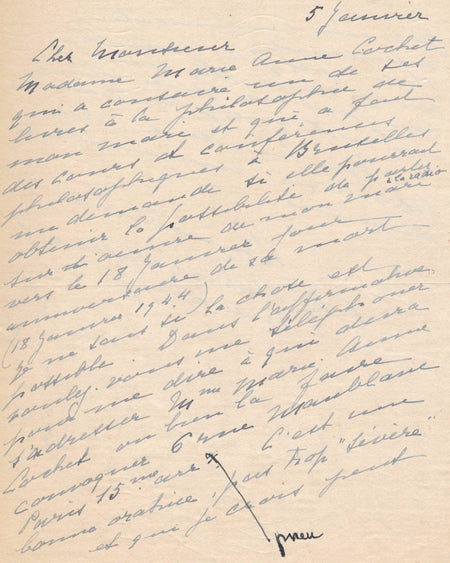 5 Janvier
Cher Monsieur
Madame Marie Anne Cochet
qui a consacré un de ses
livres à la philosophie de
mon mari et qui a fait
des cours et conférences
philosophiques à Bruxelles
me demande si elle pourrait
obtenir la possibilité de parler
à la radio
sur l'œuvre de mon mari
vers le 18 Janvier jour
anniversaire de sa mort
(18 Janvier 1944)
Je ne sais si la chose est
possible. Dans l'affirmative
voulez-vous me téléphoner
pour me dire à qui devra
s'adresser Mme Marie Anne
Cochet ou bien la faire
convoquer 6 rue Maublanc
Paris 15me arr. C'est une
bonne oratrice, pas trop "sévère"
et qui je crois peut
pneu